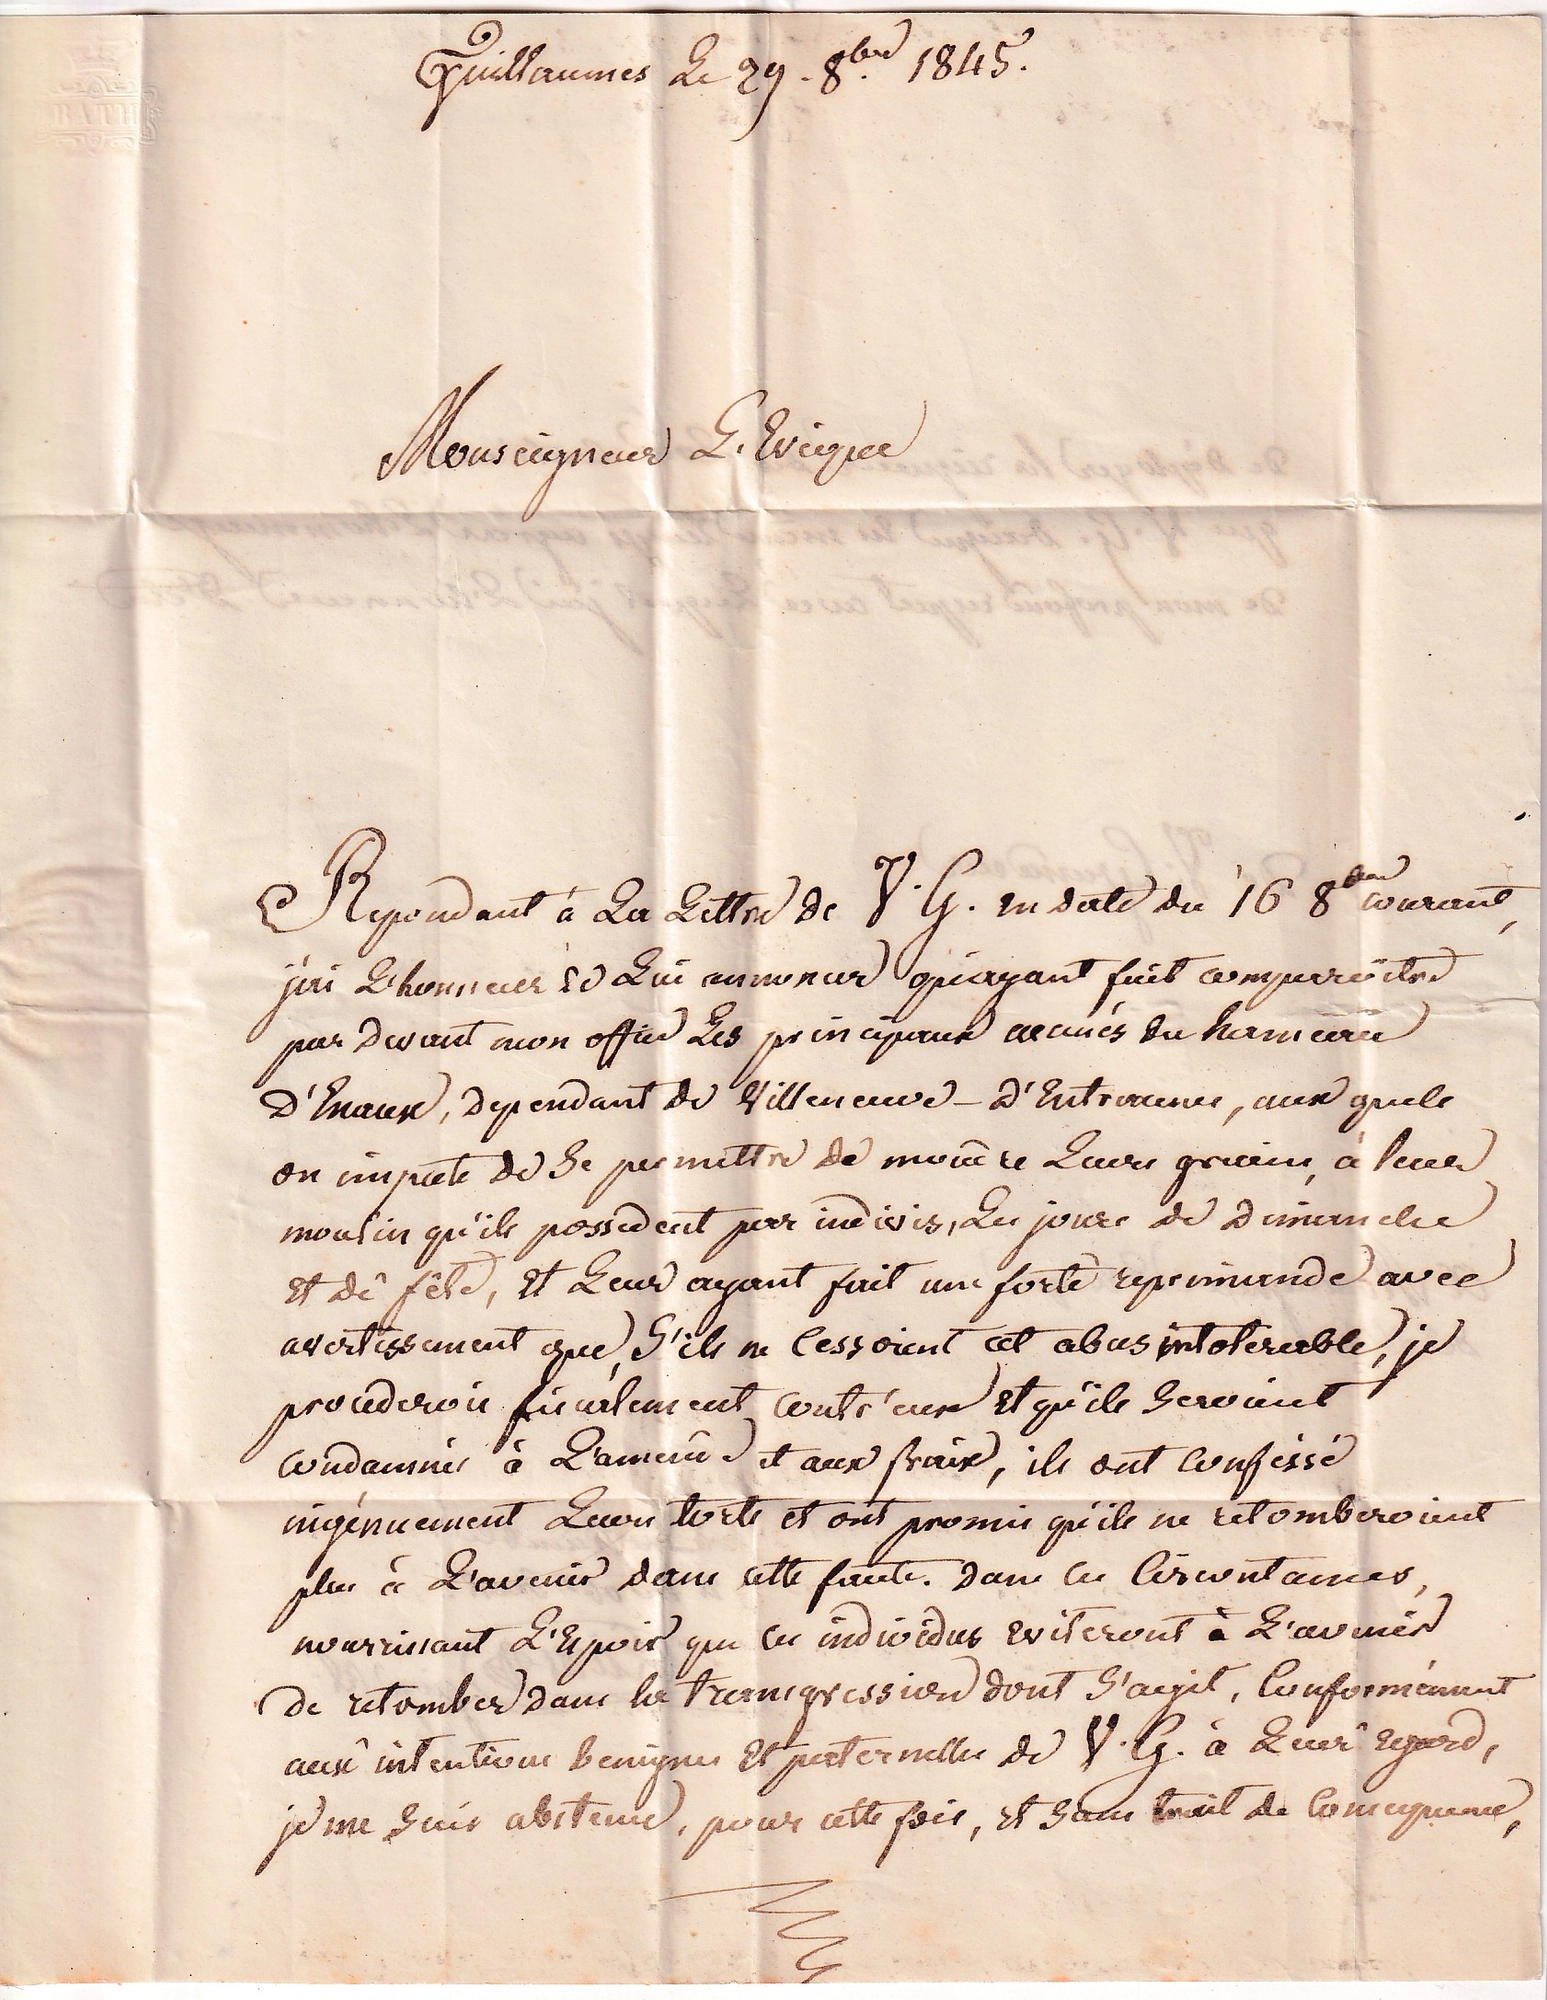 Guillaumes Le 29. 8bre 1845.
Monseigneur L'Evêque
Repondant à La Lettre de V. G. en date du 16 8bre courant,
j'ai L'honneur de Lui annoncer qu'ayant fait comparoître
par devant mon office Les principaux accusés du hameau
D'Enaux, dependant de Villeneuve-D'Entraunes, aux quels
on impute de Se permettre de moudre Leurs grains, à leur
moulin qu'ils possedent par indivis, Les jours de dimanche
et de fête, et Leur ayant fait une forte reprimande avec
avertissement que, S'ils ne Cessoient cet abus intolerable, je
procederois fiscalement contr'eux et qu'ils Seroient
condamnés à L'amende et aux fraix, ils ont confessé
ingénuement Leurs torts et ont promis qu'ils ne retomberoient
plus à L'avenir dans cette faute. Dans ces Circonstances,
nourrissant L'Espoir que ces individus eviteront à L'avenir
de retomber dans la transgression dont S'agit, Conformément
aux intentions benignes et paternelles de V. G. à Leur regard,
je me Suis abstenu, pour cette fois, et Sans trait de Consequence,